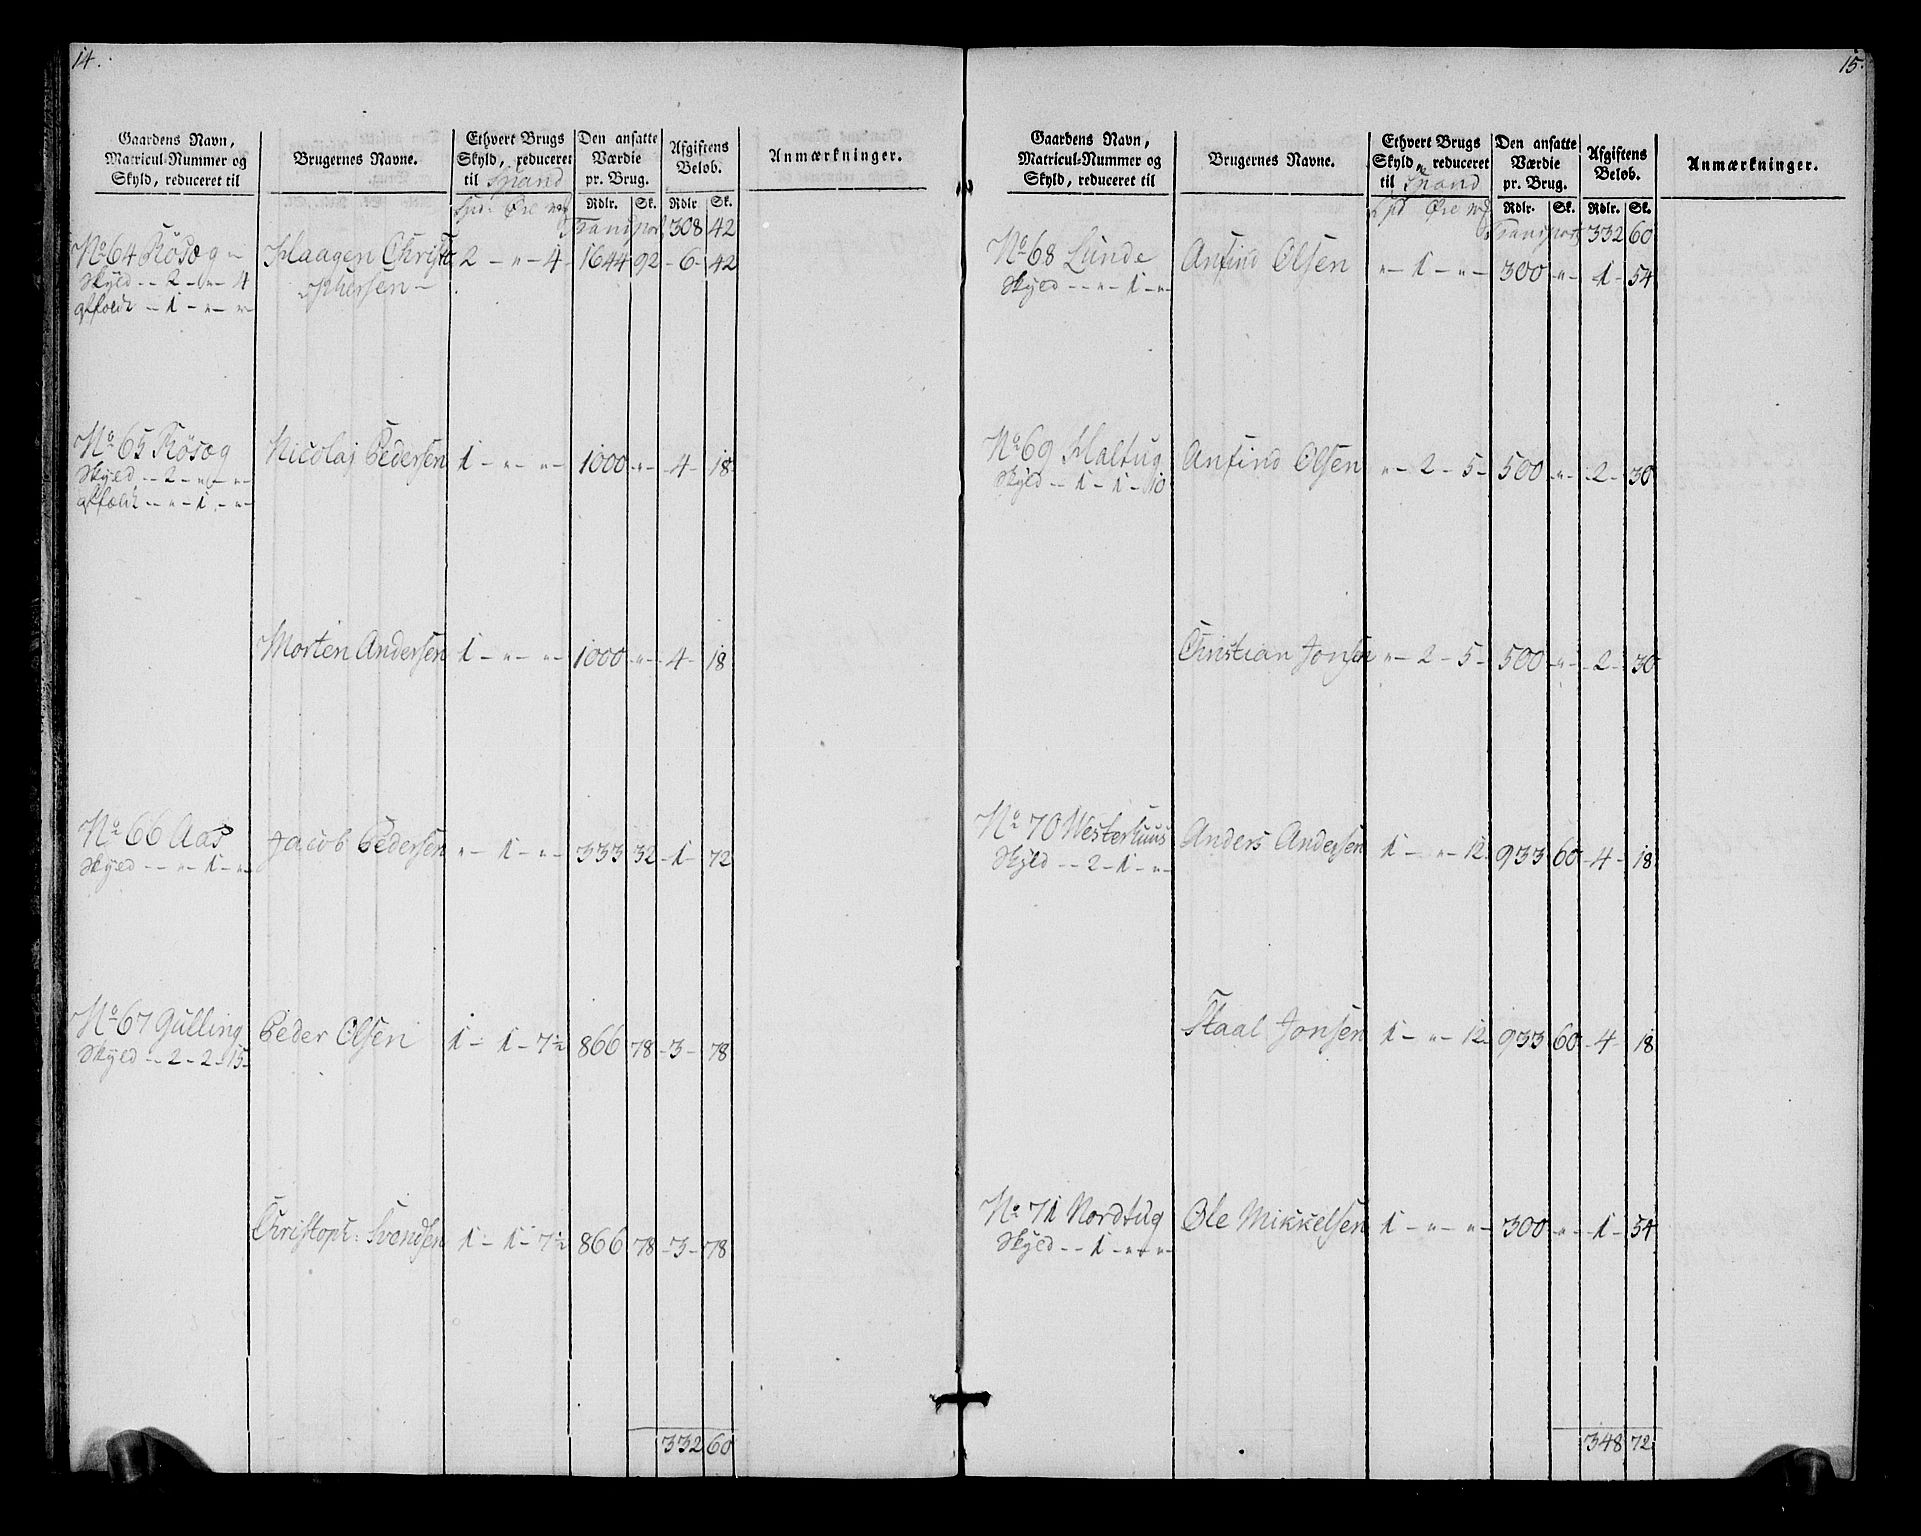 14.
Gaardens Navn, Matricul-Nummer og Skyld, reduceret til
Brugernes Navne.
Ethvert Brugs Skyld, reduceret til Spand
Den ansatte Værdie pr. Brug.
Afgiftens Beløb.
Anmærkninger.
Rdlr. Sk. Rdlr Sk.
Spd. Øre
Transport 308 42
No 64 Røsæg Haagen Christo 2 - " - 4 - 1644 92 - 6 - 42
Skyld - - 2 - " - 4 phersen -
1 - " - "
No 65 Røsæg Nicolaj Pedersen 1 - " - " - 1000 - " - 4 - 18
Skyld - - 2 - " - "
- " - 1 - " -
Morten Andersen 1 - " - " - 1000 - " - 4 - 18
No 66 Aas Jacob Pedersen " - 1 - " - 333 32 - 1 - 72
Skyld - - " - 1 - " -
No 67 Gulling Peder Olsen 1 - 1 - 7½ 866 78 - 3 - 78
Skyld - - 2 - 2 - 15 -
Christoph: Svendsen 1 - 1 - 7½ 866 78 - 3 - 78
332 60
15.
Gaardens Navn, Matricul-Nummer og Skyld, reduceret til
Brugernes Navne.
Ethvert Brugs Skyld, reduceret til Spand
Den ansatte Værdie pr. Brug.
Afgiftens Beløb.
Anmærkninger.
Rdlr. Sk. Rdlr. Sk.
Spd Øre
Transport 332 60
No 68 Lunde Anfind Olsen " - 1 - " - 300 - " - 1 - 54
Skyld - - " - 1 - "
No 69 Haltug Anfind Olsen " - 2 - 5 - 500 - " - 2 - 30
Skyld - - 1 - 1 - 10
Christian Jonsen " - 2 - 5 - 500 - " - 2 - 30
No 70 Westerhuus Anders Andersen 1 - " - 12 - 933 60 - 4 - 18
Skyld - - 2 - 1 - " -
Staal Jonsen 1 - " - 12 - 933 60 - 4 - 18
No 71 Nordtug Ole Mikkelsen 1 - " - " - 300 - " - 1 - 54
Skyld - - 1 - " - " -
348 72